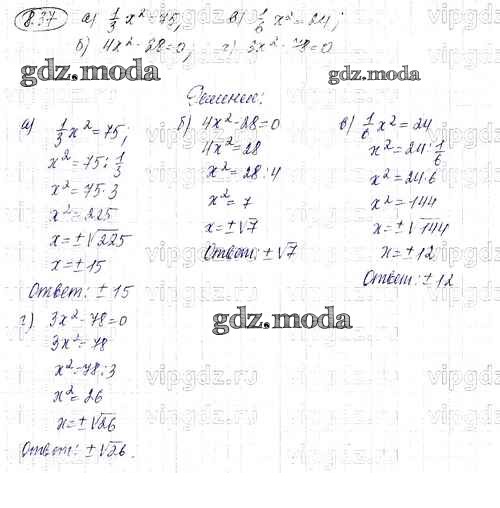 8.37 а) 1/3 x² = 75, в) 1/6 x² = 24;
б) 4x² - 28 = 0, г) 3x² - 78 = 0
gdz.moda gdz.moda
Решение:
а) 1/3 x² = 75;
x² = 75 : 1/3
x² = 75 · 3
x² = 225
x = ±√225
x = ± 15
Ответ: ± 15
б) 4x² - 28 = 0
4x² = 28
x² = 28 : 4
x² = 7
x = ±√7
Ответ: ±√7
в) 1/6 x² = 24
x² = 24 : 1/6
x² = 24 · 6
x² = 144
x = ±√144
x = ± 12
Ответ: ± 12
gdz.moda
г) 3x² - 78 = 0
3x² = 78
x² = 78 : 3
x² = 26
x = ±√26
Ответ: ±√26.
vipgdz.ru
vipgdz.ru
vipgdz.ru
vipgdz.ru